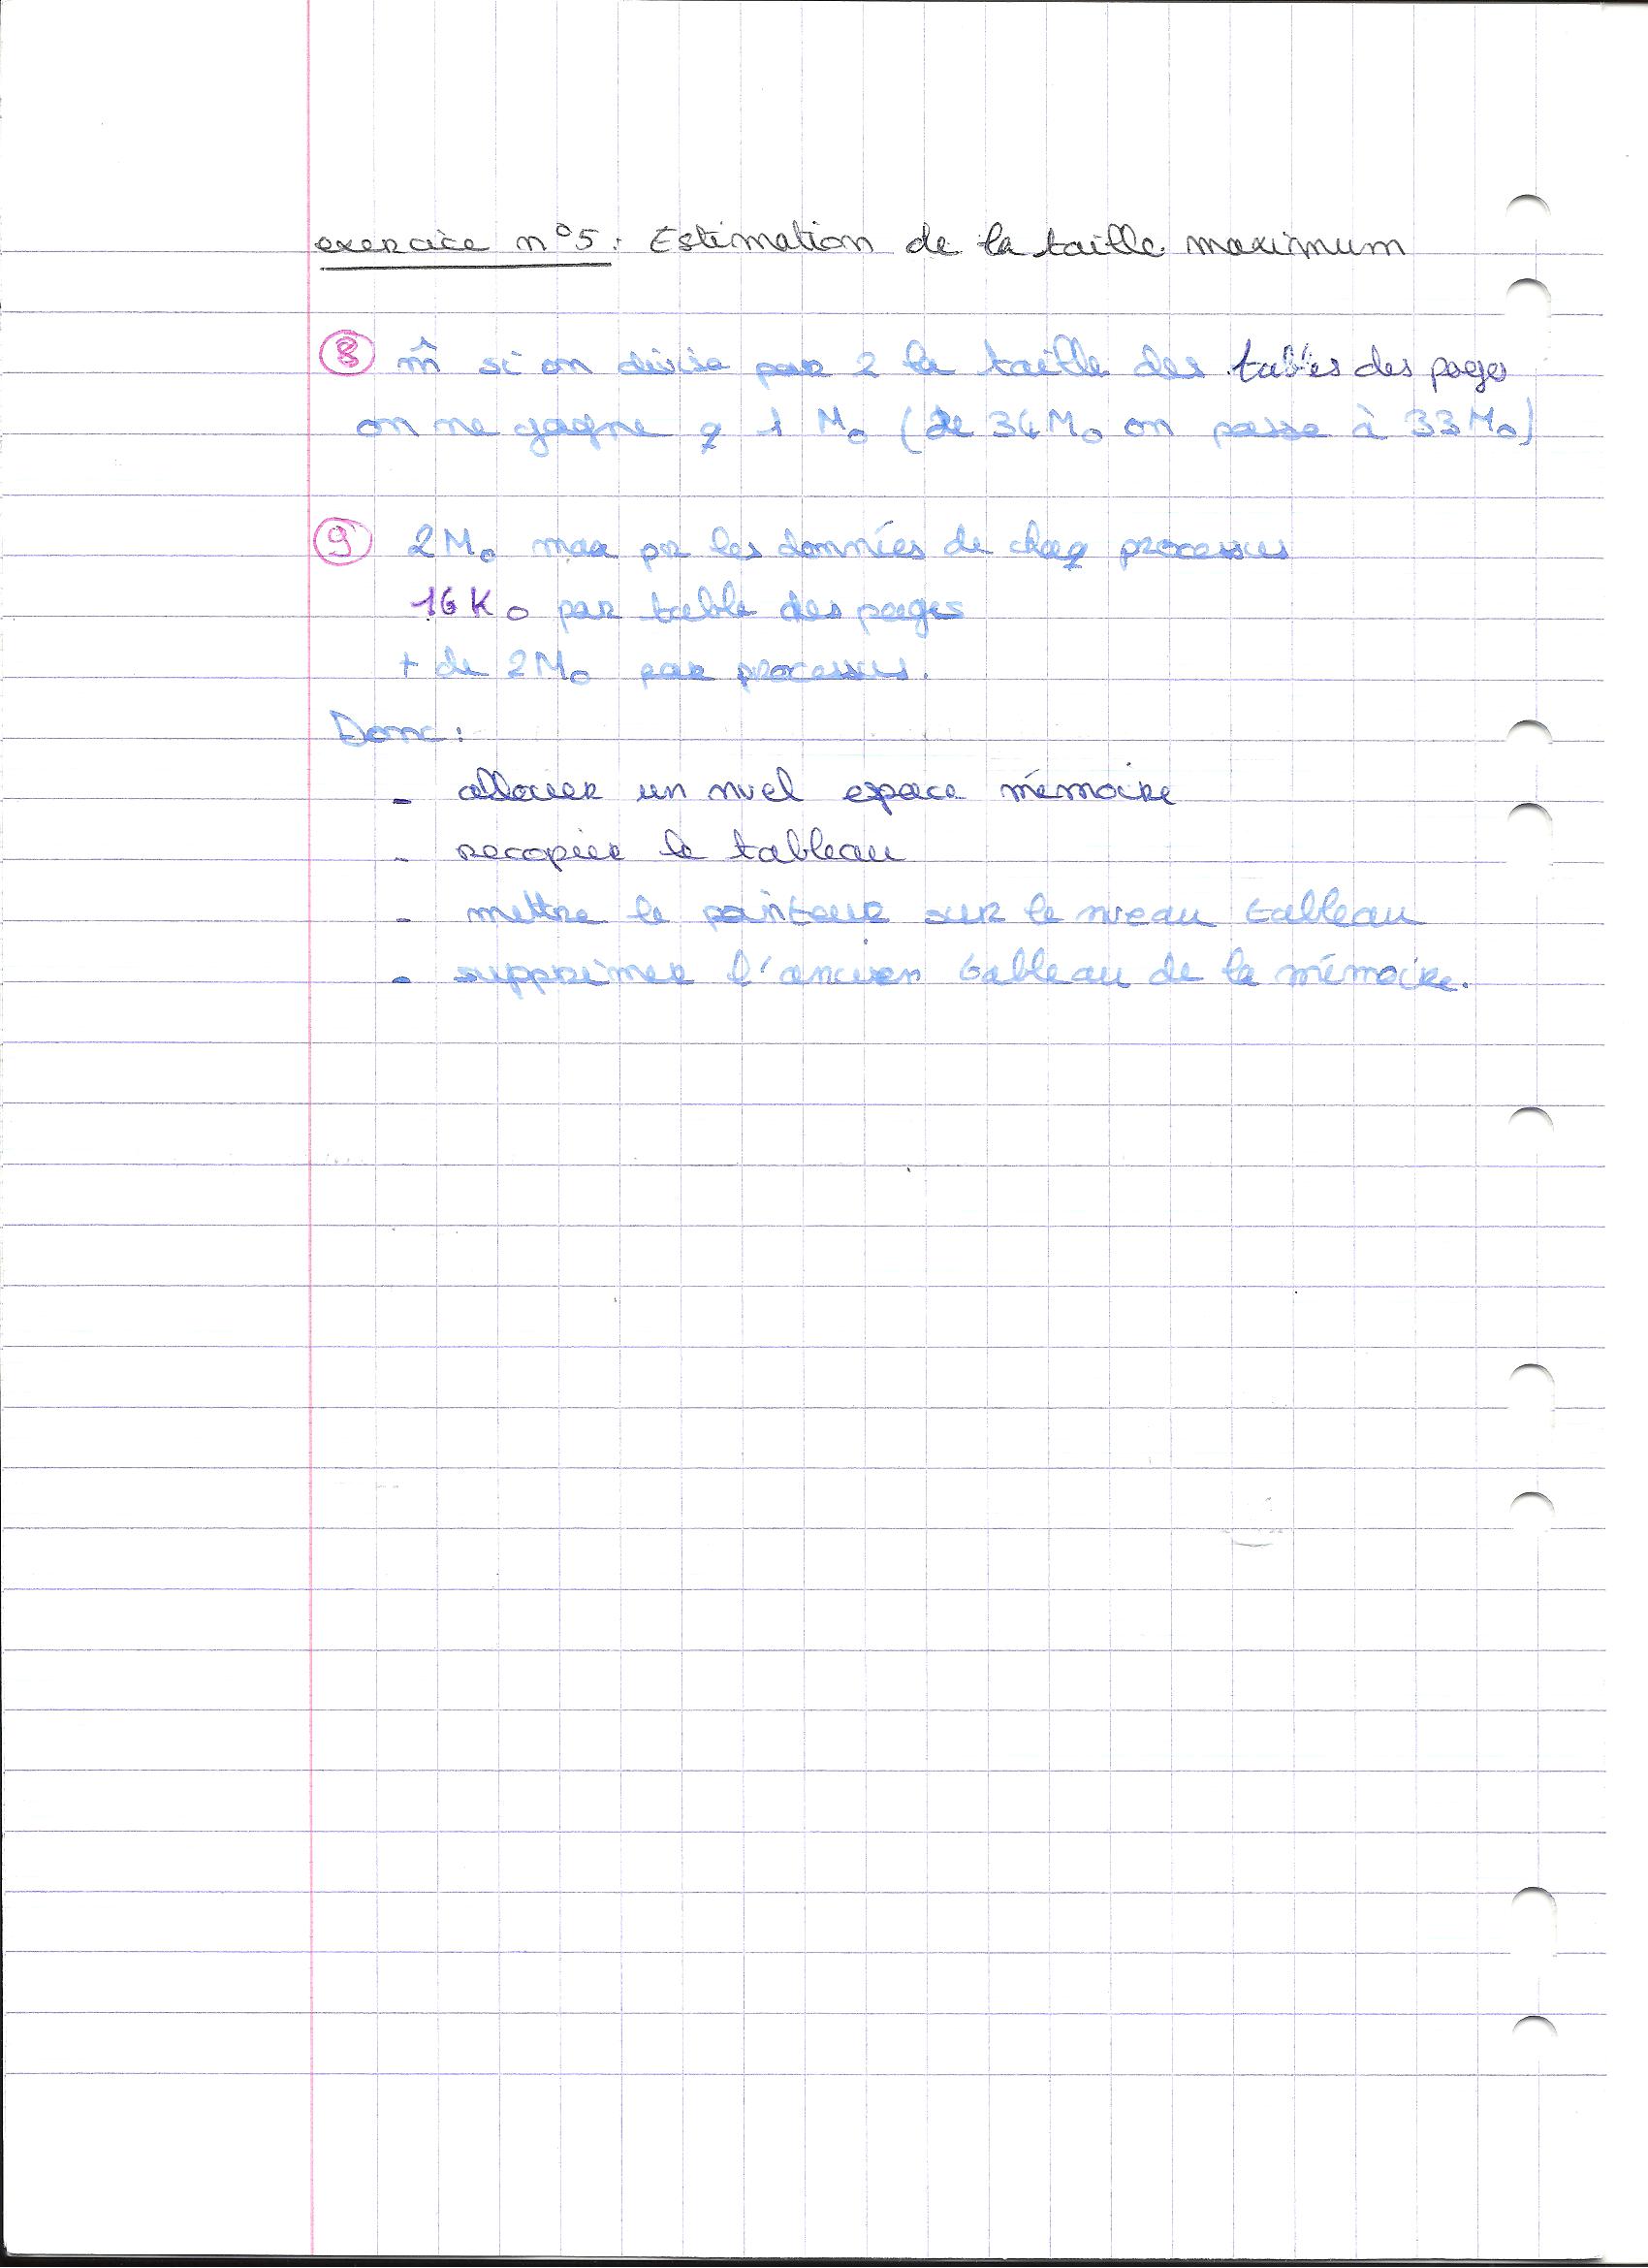 exercice n°5: Estimation de la taille maximum
⑧ m̂ si on divise par 2 la taille des tables des pages
on ne gagne q 1 Mo (de 34Mo on passe à 33Mo)
⑨ 2Mo max pr les données de chaq processus
16Ko par table des pages
+ de 2Mo par processus.
Donc:
- allouer un nvel espace mémoire
- recopier le tableau
- mettre le pointeur sur le nveau tableau
- supprimer l'ancien tableau de la mémoire.